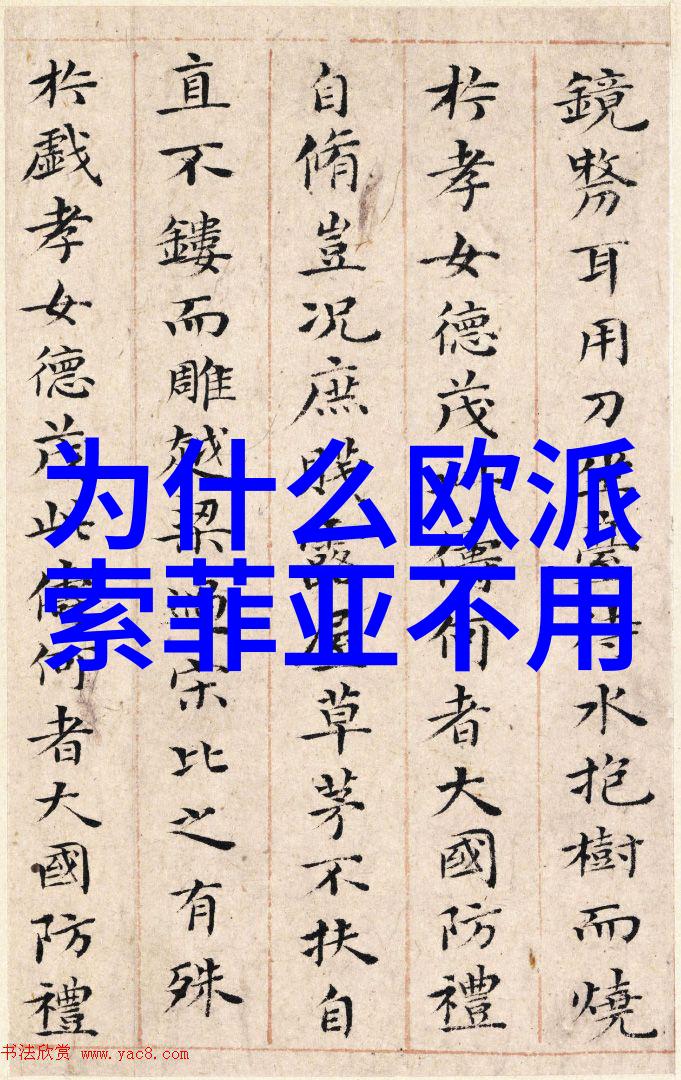 鏡剺耳用刀水抱樹而燒
於孝女德茂儔何者大國防禮
自脩豈況庶賤露屋草茅不扶自
直不鏤而雕越梁過宋比之有殊
於戲孝女德茂此儔何者大國防禮
为什么欧派
索菲亚不用
书法欣赏 www.yac8.com